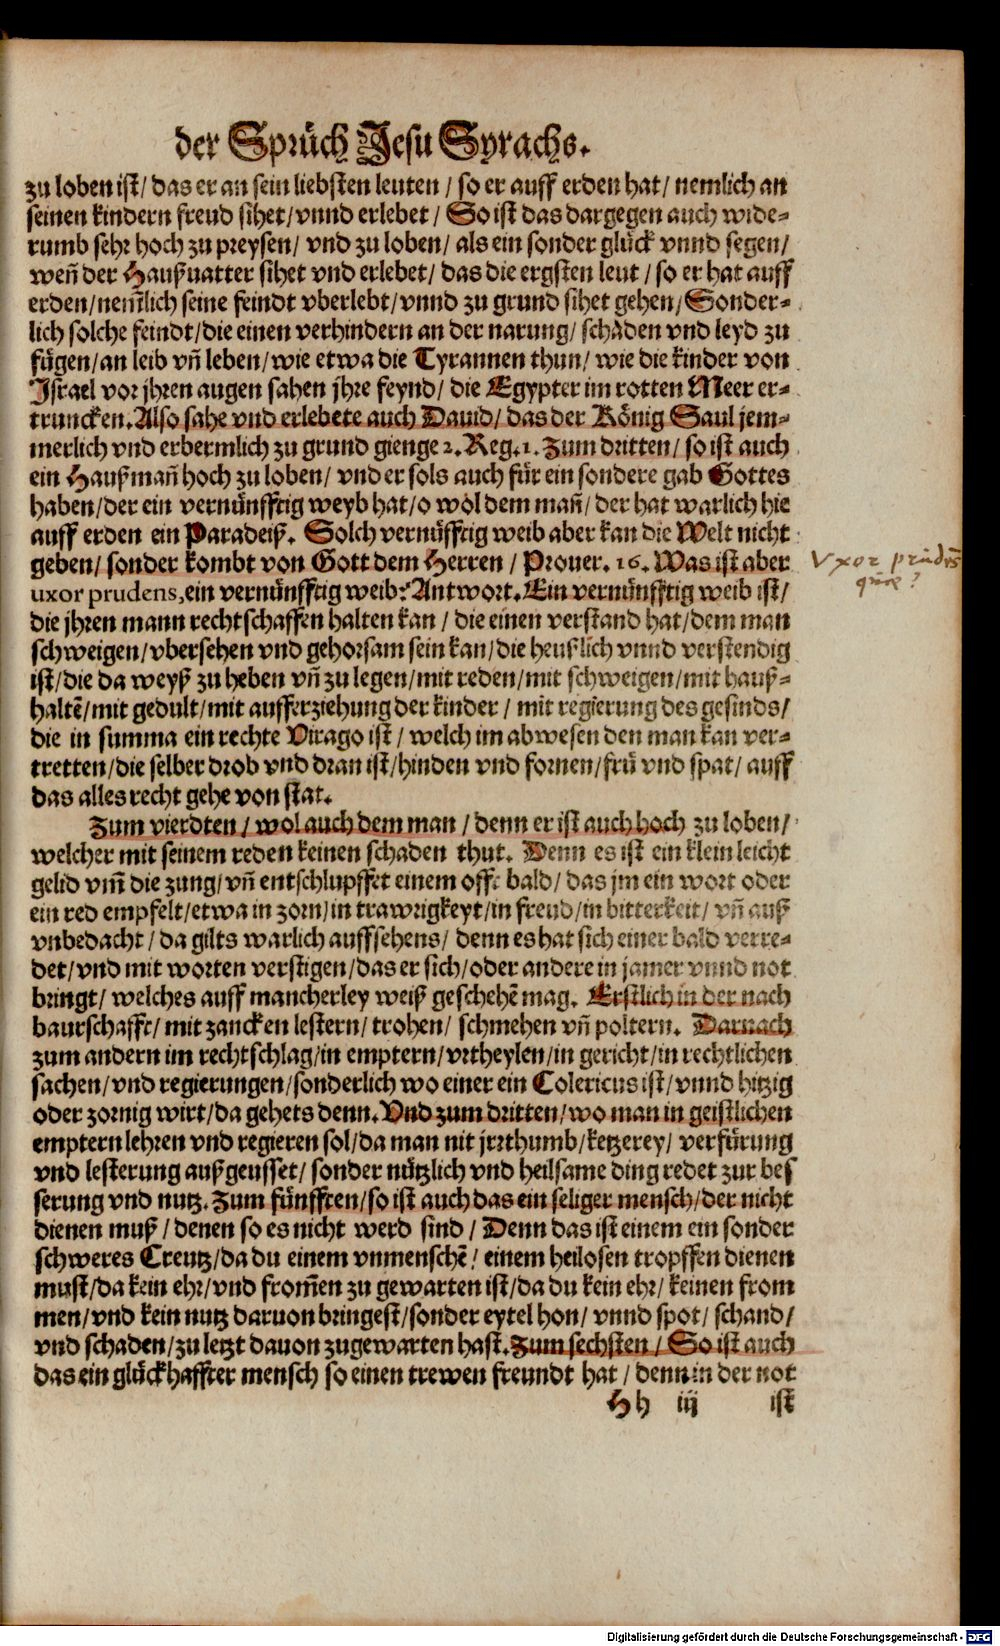 der Sprüch Jesu Syrachs.
zu loben ist/ das er an sein liebsten leuten / so er auff erden hat/ nemlich an
seinen kindern freud sihet/vnnd erlebet / So ist das dargegen auch wide-
rumb sehr hoch zu preysen/ vnd zu loben/ als ein sonder glück vnnd segen/
weñ der Haußuatter sihet vnd erlebet/ das die ergsten leut / so er hat auff
erden/nem̃lich seine feindt vberlebt/vnnd zu grund sihet gehen/Sonder-
lich solche feindt/die einen verhindern an der narung/ schäden vnd leyd zu
fügen/an leib vñ leben/wie etwa die Tyrannen thun/ wie die kinder von
Israel vor jhren augen sahen jhre feynd/ die Egypter im rotten Meer er-
truncken. Also sahe vnd erlebete auch Dauid/ das der König Saul jem-
merlich vnd erbermlich zu grund gienge 2. Reg. 1. Zum dritten/ so ist auch
ein Haußmañ hoch zu loben/ vnd er sols auch für ein sondere gab Gottes
haben/der ein vernünfftig weyb hat/o wol dem mañ/ der hat warlich hie
auff erden ein Paradeiß. Solch vernüfftig weib aber kan die Welt nicht
geben/ sonder kombt von Gott dem Herren / Prouer. 16. Was ist aber
uxor prudens, ein vernünfftig weib? Antwort. Ein vernünfftig weib ist/
die jhren mann rechtschaffen halten kan / die einen verstand hat/dem man
schweigen/vbersehen vnd gehorsam sein kan/die heußlich vnnd verstendig
ist/die da weyß zu heben vñ zu legen/mit reden/mit schweigen/mit hauß-
haltẽ/mit gedult/mit aufferziehung der kinder / mit regierung des gesinds/
die in summa ein rechte Virago ist / welch im abwesen den man kan ver-
tretten/die selber drob vnd dran ist/hinden vnd fornen/frü vnd spat/ auff
das alles recht gehe von stat.
Zum vierdten / wol auch dem man / denn er ist auch hoch zu loben/
welcher mit seinem reden keinen schaden thut. Denn es ist ein klein leicht
gelid vm̃ die zung/vñ entschlupffet einem offt bald/ das jm ein wort oder
ein red empfelt/etwa in zorn/in trawrigkeyt/in freud/in bitterkeit/ vñ auß
vnbedacht/ da gilts warlich auffsehens/ denn es hat sich einer bald verre-
det/vnd mit worten verstigen/das er sich/oder andere in jamer vnnd not
bringt/ welches auff mancherley weiß geschehẽ mag. Erstlich in der nach
baurschafft/mit zancken lestern/trohen/ schmehen vñ poltern. Darnach
zum andern im rechtschlag/in emptern/vrtheylen/in gericht/in rechtlichen
sachen/vnd regierungen/sonderlich wo einer ein Colericus ist/vnnd hitzig
oder zornig wirt/da gehets denn. Vnd zum dritten/wo man in geistlichen
emptern lehren vnd regieren sol/da man nit jrrthumb/ketzerey/ verfürung
vnd lesterung außgeusset/ sonder nützlich vnd heilsame ding redet zur bes
serung vnd nutz. Zum fünfften/so ist auch das ein seliger mensch/der nicht
dienen muß / denen so es nicht werd sind / Denn das ist einem ein sonder
schweres Creutz/da du einem vnmenschẽ/ einem heilosen tropffen dienen
must/da kein ehr/vnd from̃en zu gewarten ist/da du kein ehr/ keinen from
men/vnd kein nutz daruon bringest/sonder eytel hon/ vnnd spot/ schand/
vnd schaden/zu letzt dauon zugewarten hast. Zum sechsten / So ist auch
das ein glückhaffter mensch so einen trewen freundt hat / denn in der not
Hh iij ist
Vxor prudẽs
quæ?
Digitalisierung gefördert durch die Deutsche Forschungsgemeinschaft - DFG